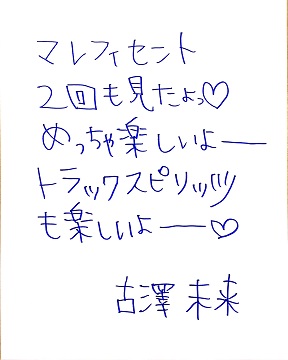 マレフィセント
2回も見たよっ♡
めっちゃ楽しいよー
トラックスピリッツ
も楽しいよー♡
古澤 未来